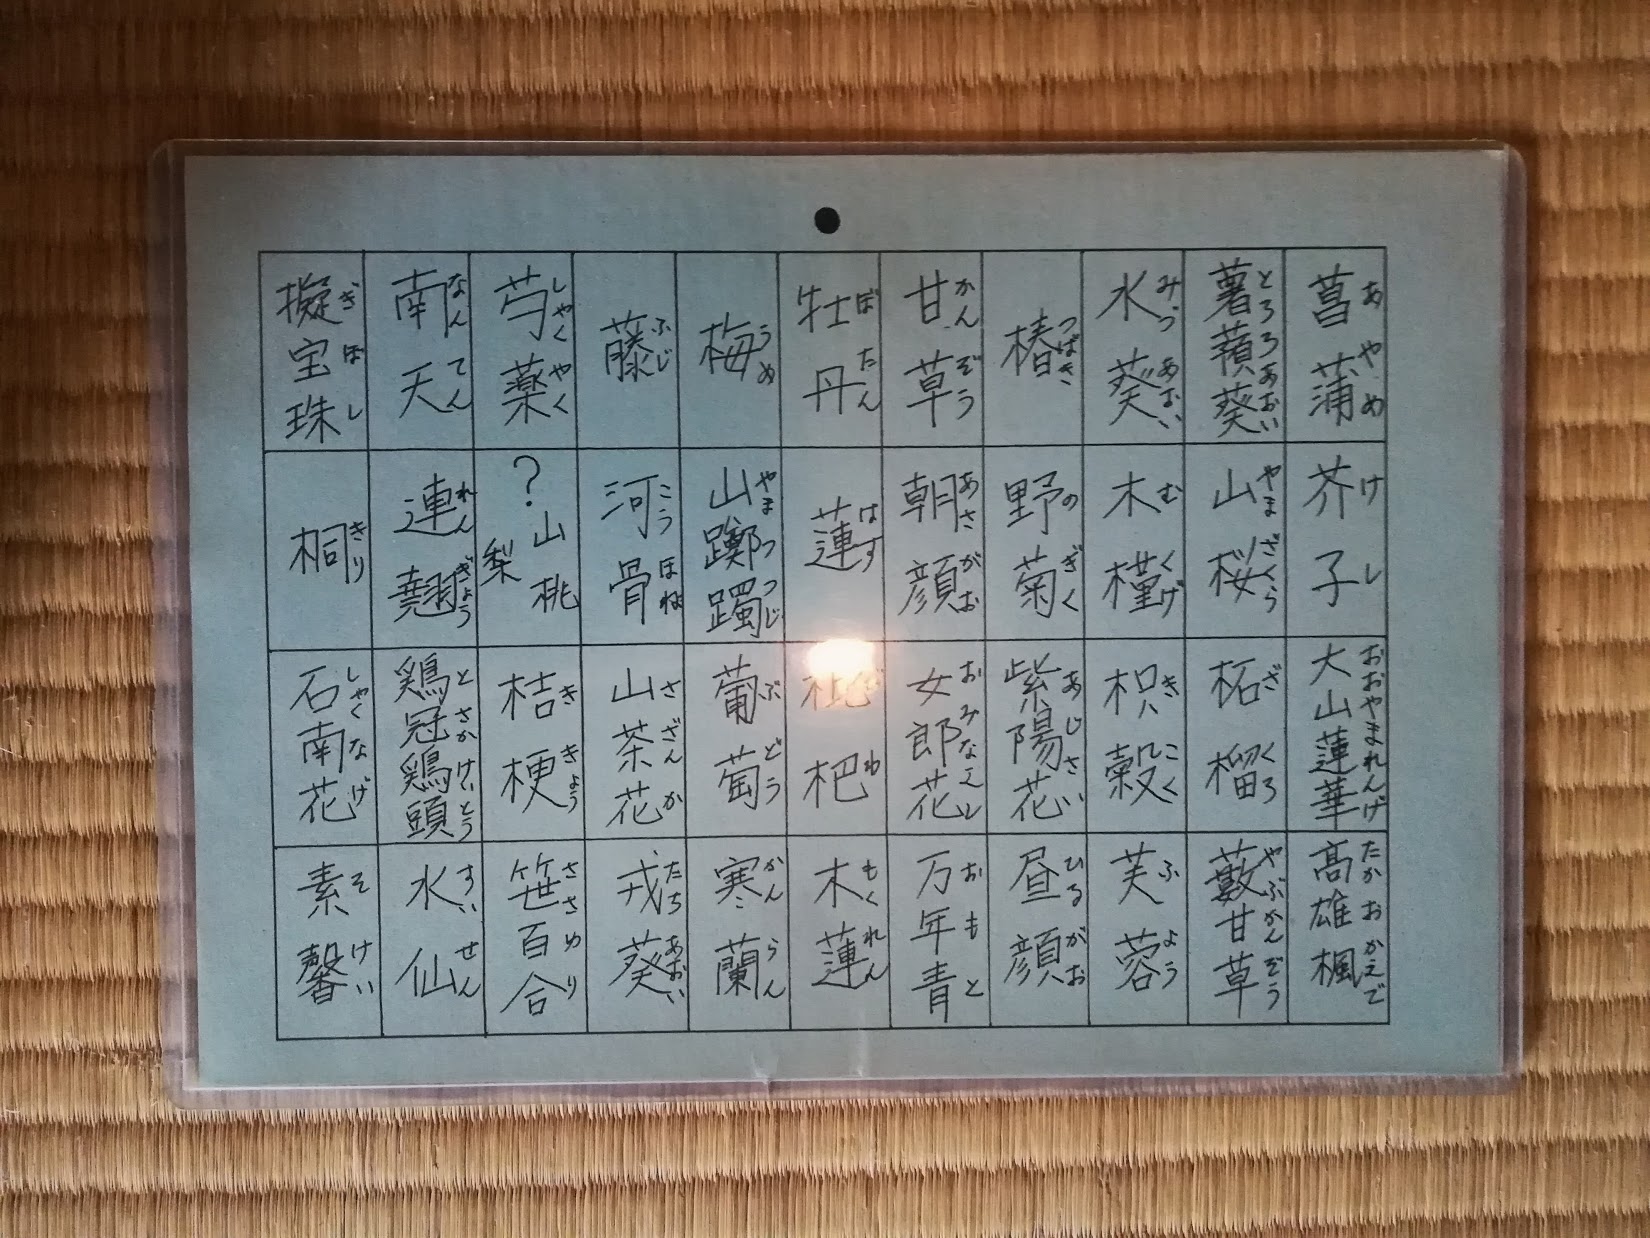 菖蒲
あやめ
薯蕷葵
とろろあおい
水葵
みづあおい
椿
つばき
甘草
かんぞう
牡丹
ぼたん
梅
うめ
藤
ふじ
芍薬
しゃくやく
南天
なんてん
擬宝珠
ぎぼし
芥子
けし
山桜
やまざくら
木槿
むくげ
野菊
のぎく
朝顔
あさがお
蓮
はす
山躑躅
やまつつじ
河骨
こうほね
?山桃
梨
連翹
れんぎょう
桐
きり
大山蓮華
おおやまれんげ
柘榴
ざくろ
枳殻
きこく
紫陽花
あじさい
女郎花
おみなえし
枇杷
びわ
葡萄
ぶどう
山茶花
さざんか
桔梗
ききょう
鶏冠鶏頭
とさかけいとう
石南花
しゃくなげ
高雄楓
たかおかえで
藪甘草
やぶかんぞう
芙蓉
ふよう
昼顔
ひるがお
万年青
おもと
木蓮
もくれん
寒蘭
かんらん
戎葵
たちあおい
笹百合
ささゆり
水仙
すいせん
素馨
そけい